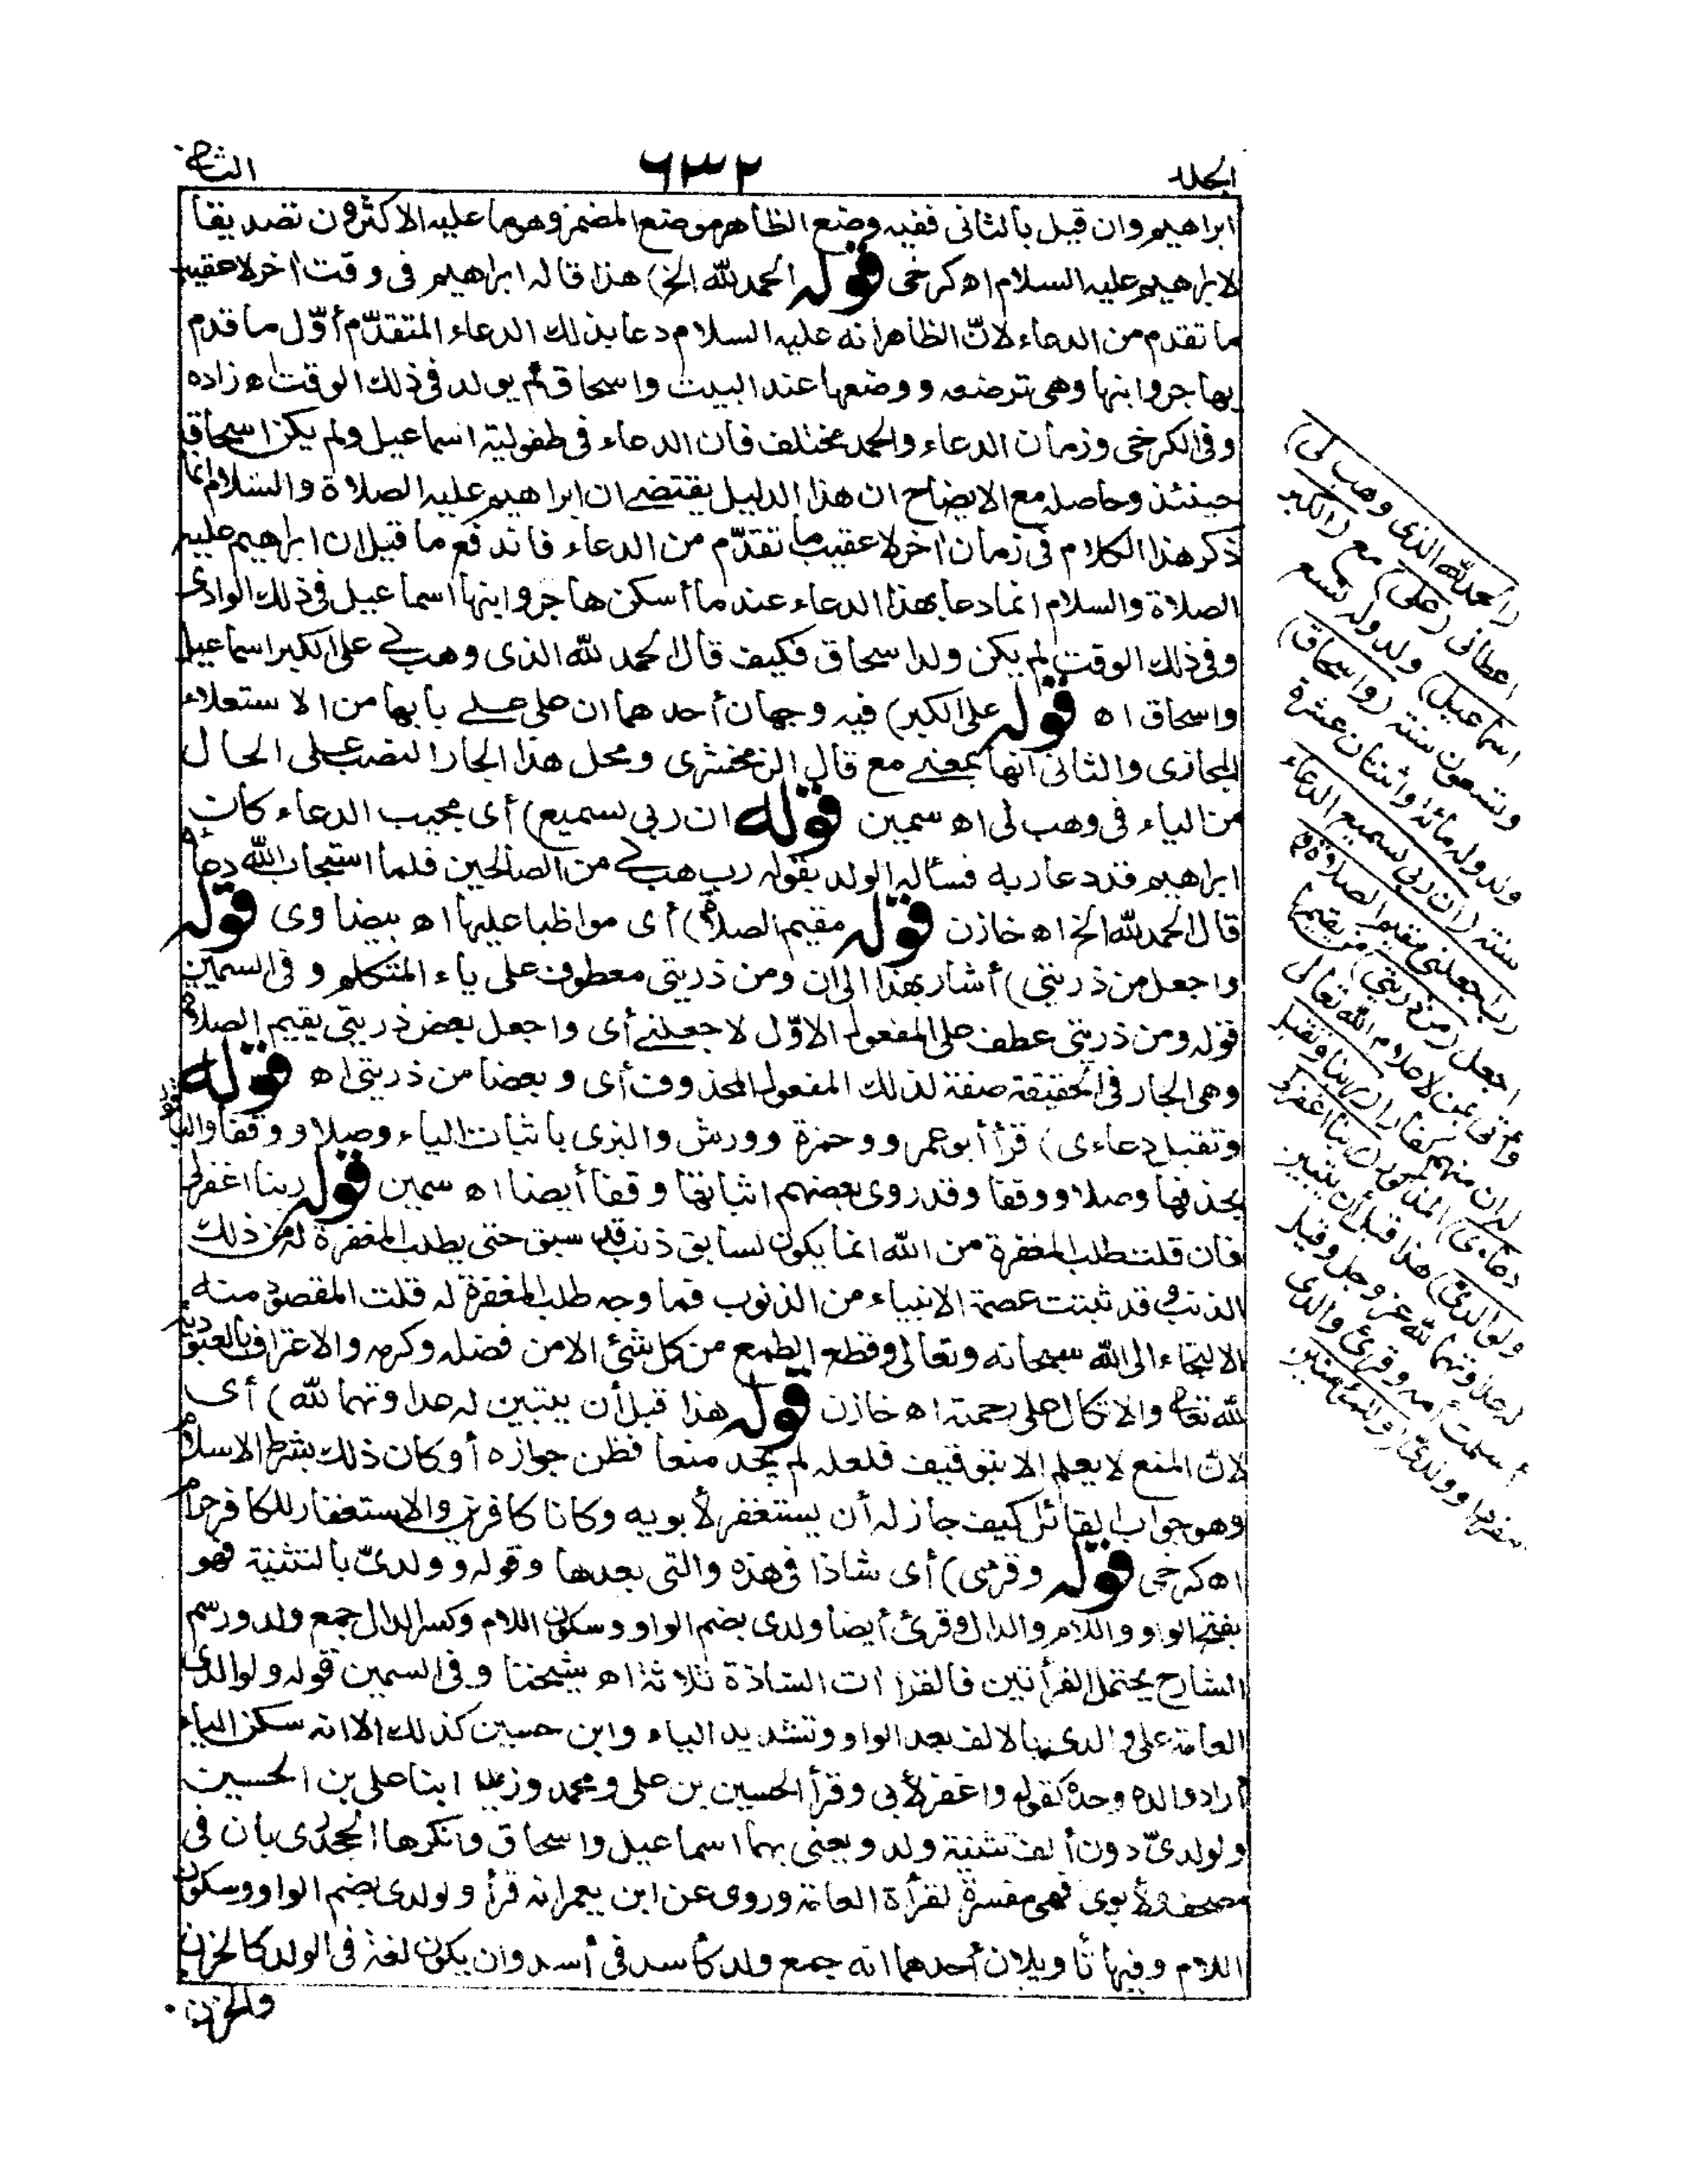 الجلد ٦٣٢ الثاني
ابراهيم وان قيل بالثانى ففيه وضع الظاهر موضع المضمر وهو ما عليه الاكثرون تصديقا
لابراهيم عليه السلام اه كرخى قوله الحمد لله الخ) هذا قاله ابراهيم فى وقت اخر لا عقيب
ما تقدم من الدعاء لانّ الظاهر انه عليه السلام دعا بذلك الدعاء المتقدّم أوّل ما قدم
بهاجر وابنها وهى ترضعه ووضعها عند البيت واسحاق لم يولد فى ذلك الوقت اه زاده
وفى الكرخى وزمان الدعاء والحمد مختلف فان الدعاء فى طفولية اسماعيل ولم يكن اسحاق
حينئذ وحاصله مع الايضاح ان هذا الدليل يقتضى ان ابراهيم عليه الصلاة والسلام انما
ذكر هذا الكلام فى زمان اخر لا عقيب ما تقدّم من الدعاء فاندفع ما قيل ان ابراهيم عليه
الصلاة والسلام انما دعا بهذا الدعاء عند ما أسكن هاجر وابنها اسماعيل فى ذلك الوادى
وفى ذلك الوقت لم يكن ولد اسحاق فكيف قال الحمد لله الذى وهب لى على الكبر اسماعيل
واسحاق اه قوله على الكبر) فيه وجهان أحدهما ان على على بابها من الاستعلاء
المجازى والثانى انها بمعنى مع قال الزمخشرى ومحل هذا الجار النصب على الحال
من الياء فى وهب لى اه سمين قوله ان ربى لسميع) أى مجيب الدعاء كان
ابراهيم قد دعا ربه فسأله الولد بقوله رب هب لى من الصالحين فلما استجاب الله دعاءه
قال الحمد لله الخ اه خازن قوله مقيم الصلاة) أى مواظبا عليها اه بيضاوى قوله
واجعل من ذريتى) أشار بهذا الى ان ومن ذريتى معطوف على ياء المتكلم وفى السمين
قوله ومن ذريتى عطف على المفعول الاوّل لاجعلنى أى واجعل بعض ذريتى يقيم الصلاة
وهى الجار فى الحقيقة صفة لذلك المفعول المحذوف أى وبعضا من ذريتى اه قوله
وتقبل دعاءى) قرأ أبو عمرو وحمزة وورش والبزى باثبات الياء وصلا ووقفا والباقون
بحذفها وصلا ووقفا وقد روى بعضهم اثباتها وقفا أيضا اه سمين قوله ربنا اغفر لى
فان قلت طلب المغفرة من الله انما يكون لسابق ذنب قد سبق حتى يطلب المغفرة له من ذلك
الذنب وقد ثبتت عصمة الانبياء من الذنوب فما وجه طلب المغفرة له قلت المقصود منه
الالتجاء الى الله سبحانه وتعالى وقطع الطمع من كل شئ الا من فضله وكرمه والاعتراف بالعبودية
لله تعالى والاتكال على رحمته اه خازن قوله هذا قبل أن يتبين له عداوتهما لله) أى
لان المنع لا يعلم الا بتوقيف فلعله لم يجد منعا فظن جوازه أو كان ذلك بشرط الاسلام
وهو جواب لقائل كيف جاز له أن يستغفر لأبويه وكانا كافرين والاستغفار للكافر حرام
اه كرخى قوله وقرئ) أى شاذا فى هذه والتى بعدها وقوله وولدىّ بالتثنية فهو
بفتح الواو واللام والدال وقرئ أيضا ولدى بضم الواو وسكون اللام وكسر الدال جمع ولد ورسم
الشارح يحتمل القرأتين فالقراات الشاذة ثلاثة اه شيخنا وفى السمين قوله ولوالدى
العامة على والدى بالالف بعد الواو وتشديد الياء وابن حسين كذلك الا انه سكن الياء
أراد والده وحده كقوله واغفر لأبى وقرأ الحسين بن على ومحمد وزيد ابنا على بن الحسين
ولولدىّ دون ألف تثنية ولد ويعنى بهما اسماعيل واسحاق وانكرها الجحدرى بان فى
مصحفه ولأبوى فهى مفسرة لقرأة العامة وروى عن ابن يعمر انه قرأ ولولدى بضم الواو وسكون
اللام وفيها تأويلان أحدهما انه جمع ولد كأسد فى أسد وان يكون لغة فى الولد كالحزن
والحزن
(الحمد لله الذى وهب لى)
اعطانى (على) مع (الكبر
اسماعيل) ولد وله تسع
وتسعون سنة (واسحاق)
ولد وله مائة واثنتان عشرة
سنة (ان ربى لسميع الدعاء
رب اجعلنى مقيم الصلاة و)
اجعل (من ذريتى) من يقيمها
وأتى بمن لاعلام الله تعالى
له ان منهم كفارا (ربنا وتقبل
دعاءى) المذكور (ربنا اغفر لى
ولوالدىّ) هذا قبل أن يتبين
له عداوتهما لله عز وجل وقيل
أسلمت أمه وقرئ والدى
مفردا وولدىّ (وللمؤمنين